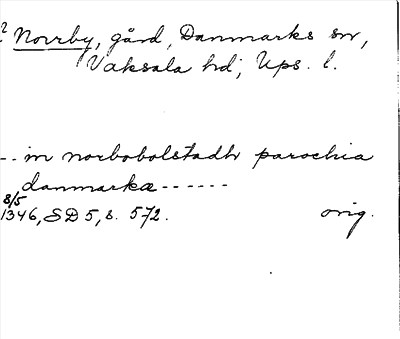 ? Norrby, gård, Danmarks sn,
Vaksala hd, Ups. l.
-- in norbobolstadh parochia
danmarka ------
8/5
1346, SD 5, s. 572. orig.